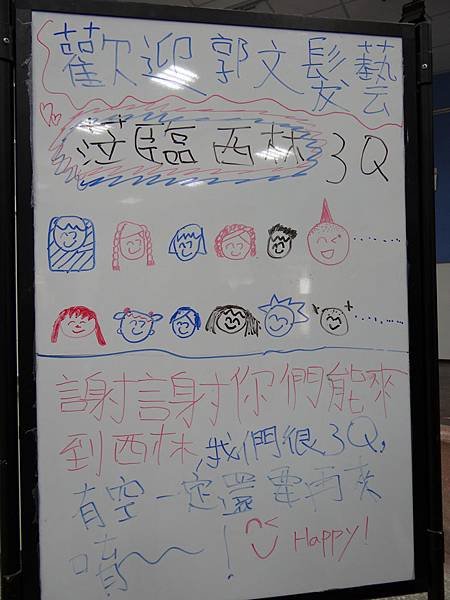 歡迎郭文髮藝
蒞臨西林 3Q
謝謝你們能來
到西林,我們很3Q,
有空一定還要再來
唷~~! Happy!